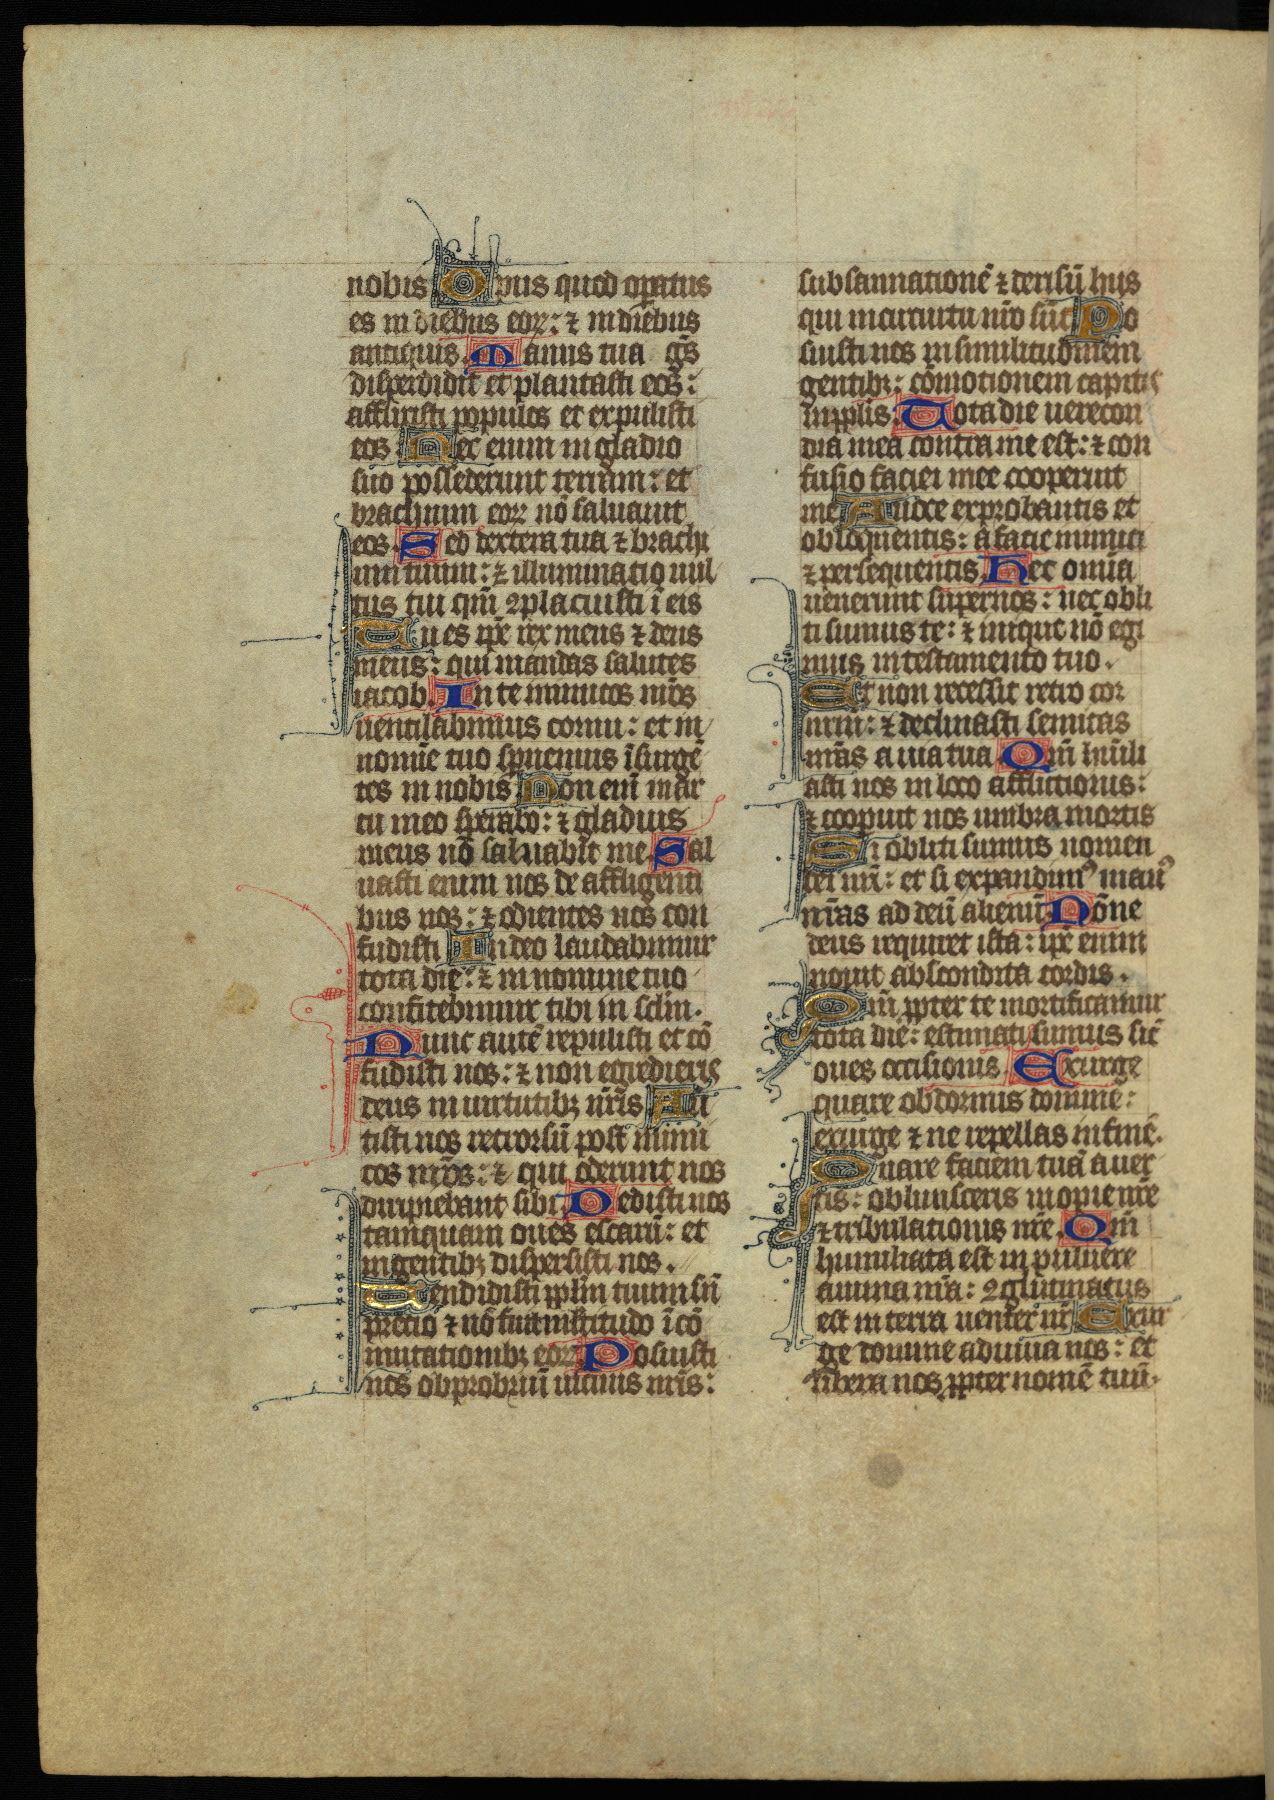 nobis Opus quod opatus
es in diebus eoꝝ: ⁊ in diebus
antiquis. Manus tua gẽs
disperdidit et plantasti eos:
afflixisti populos et expulisti
eos. Nec enim in gladio
suo possederunt terram: et
brachium eoꝝ nõ saluauit
eos. Sed dextera tua ⁊ brachi
um tuum: ⁊ illuminatio uul
tus tui qm̃ ꝯplacuisti ĩ eis
Tu es ip̃e rex meus ⁊ deus
meus: qui mandas salutes
iacob. In te inimicos nr̃os
uentilabimus cornu: et in
noĩe tuo sp̃nemus ĩsurgẽ
tes in nobis Non eni in ar
cu meo sperabo: ⁊ gladius
meus nõ saluabit me. Sal
uasti enim nos de affligenti
bus nos: ⁊ odientes nos con
fudisti In deo laudabimur
tota die: ⁊ in nomine tuo
confitebimur tibi in sclm̃.
Nunc autẽ repulisti et cõ
fudisti nos: ⁊ non egredieris
deus in uirtutibꝫ nr̃is Au
tisti nos retrorsũ post inimi
cos nr̃os: ⁊ qui oderunt nos
diripiebant sibi. Dedisti nos
tamquam oues escarũ: et
in gentibꝫ dispersisti nos.
Uendidisti ppl̃m tuum sñ
precio ⁊ nõ fuit mltitudo ĩ cõ
mutationibꝫ eoꝝ Posuisti
nos obprobriũ uicinis nr̃is:
subsannationẽ ⁊ derisũ hiis
qui in circuitu nr̃o sũt Po
suisti nos in similitudinem
gentibꝫ: cõmotionem capitis
in pplis. Tota die uerecon
dia mea contra me est: ⁊ con
fusio faciei mee cooperuit
me A uoce exprobantis et
obloquentis: a facie inimici
⁊ persequentis. Hec omĩa
uenerunt super nos: nec obli
ti sumus te: ⁊ inique nõ egi
mus in testamento tuo.
Et non recessit retro cor
nrm̃: ⁊ declinasti semitas
nr̃as a uia tua Qm̃ hũili
asti nos in loco afflictionis:
⁊ coopuit nos umbra mortis
Si obliti sumus nomen
dei nr̃i: et si expandimꝰ manꝰ
nr̃as ad deũ alienũ Nõne
deus requiret ista: ip̃e enim
nouit abscondita cordis.
Qm̃ ꝓpter te mortificamur
tota die: estimati sumus sic̃
oues occisionis. Exurge
quare obdormis domine:
exurge ⁊ ne repellas in finẽ.
Quare faciem tuã auer
tis: obliuisceris inopie nr̃e
⁊ tribulationis nr̃e. Qm̃
humiliata est in puluere
anima nr̃a: ꝯglutinatus
est in terra uenter nr̃ Exur
ge domine adiuua nos: et
libera nos ꝓpter nomẽ tuũ.